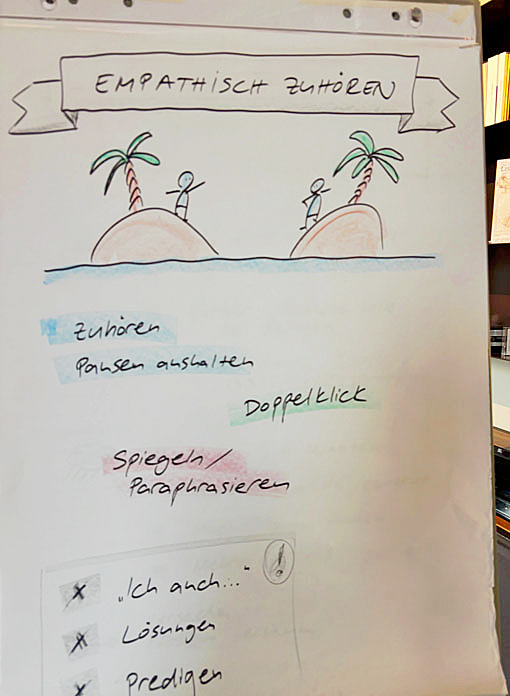 EMPATHISCH ZUHÖREN
Zuhören
Pausen aushalten
Doppelklick
Spiegeln /
Paraphrasieren
!
x „Ich auch..."
x Lösungen
x Predigen